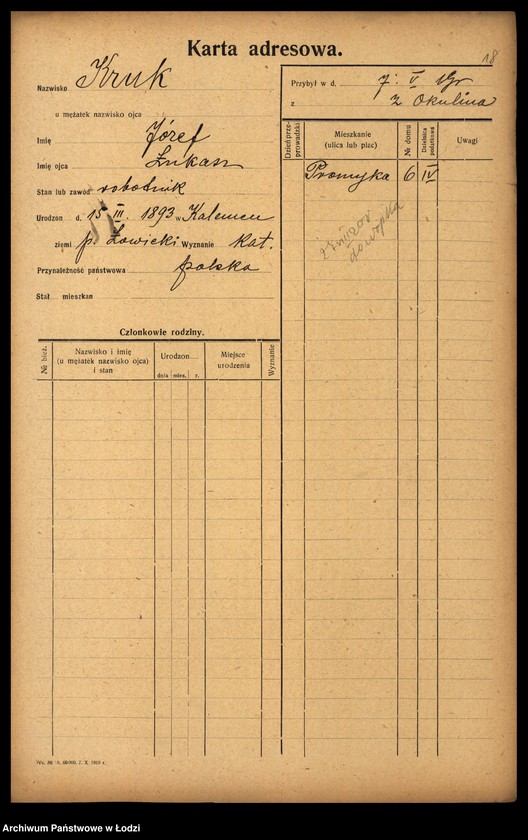 18
Karta adresowa.
Nazwisko Kruk
u mężatek nazwisko ojca
Imię Józef
Imię ojca Łukasz
Stan lub zawód robotnik
Urodzon d. 15 III. 1893 w Kalemen
ziemi p. Łowicki Wyznanie Kat.
Przynależność państwowa polska
Stał mieszkan
Przybył w d. 7. V
z z Okulina
Dzień przeprowadzki
Mieszkanie (ulica lub plac)
№ domu
Dzielnica podatkowa
Uwagi
Promyka 6 IV
Członkowie rodziny.
№ bież.
Nazwisko i imię
(u mężatek nazwisko ojca)
i stan
Urodzon
dnia mies. r.
Miejsce
urodzenia
Wyznanie
Archiwum Państwowe w Łodzi